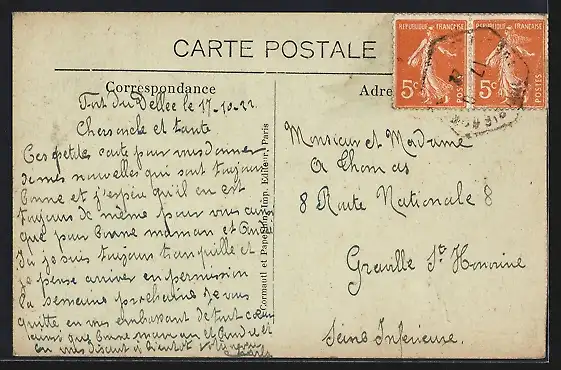 CARTE POSTALE
RÉPUBLIQUE FRANÇAISE
5c POSTES
RÉPUBLIQUE FRANÇAISE
5c POSTES
Correspondance
Adre
Fort du Dellec le 17-10-22
Cher oncle et tante
Ces petite carte pour vous donner
de mes nouvelles qui sont toujours
bonne et j'espère qu'il en est
toujours de même pour vous aussi
que pour bonne maman et André
Du je suis toujours tranquille et
je pense arriver en permission
la semaine prochaine je vous
quitte en vous embrassant de tout coeur
ainsi que bonne maman et André et
en vous disant a bientot
Cormault et Papeghin, Imp. Editeur, Paris
Monsieur et Madame
A Thomas
8 Route Nationale 8
Graville Ste Honorine
Seine Inférieure.